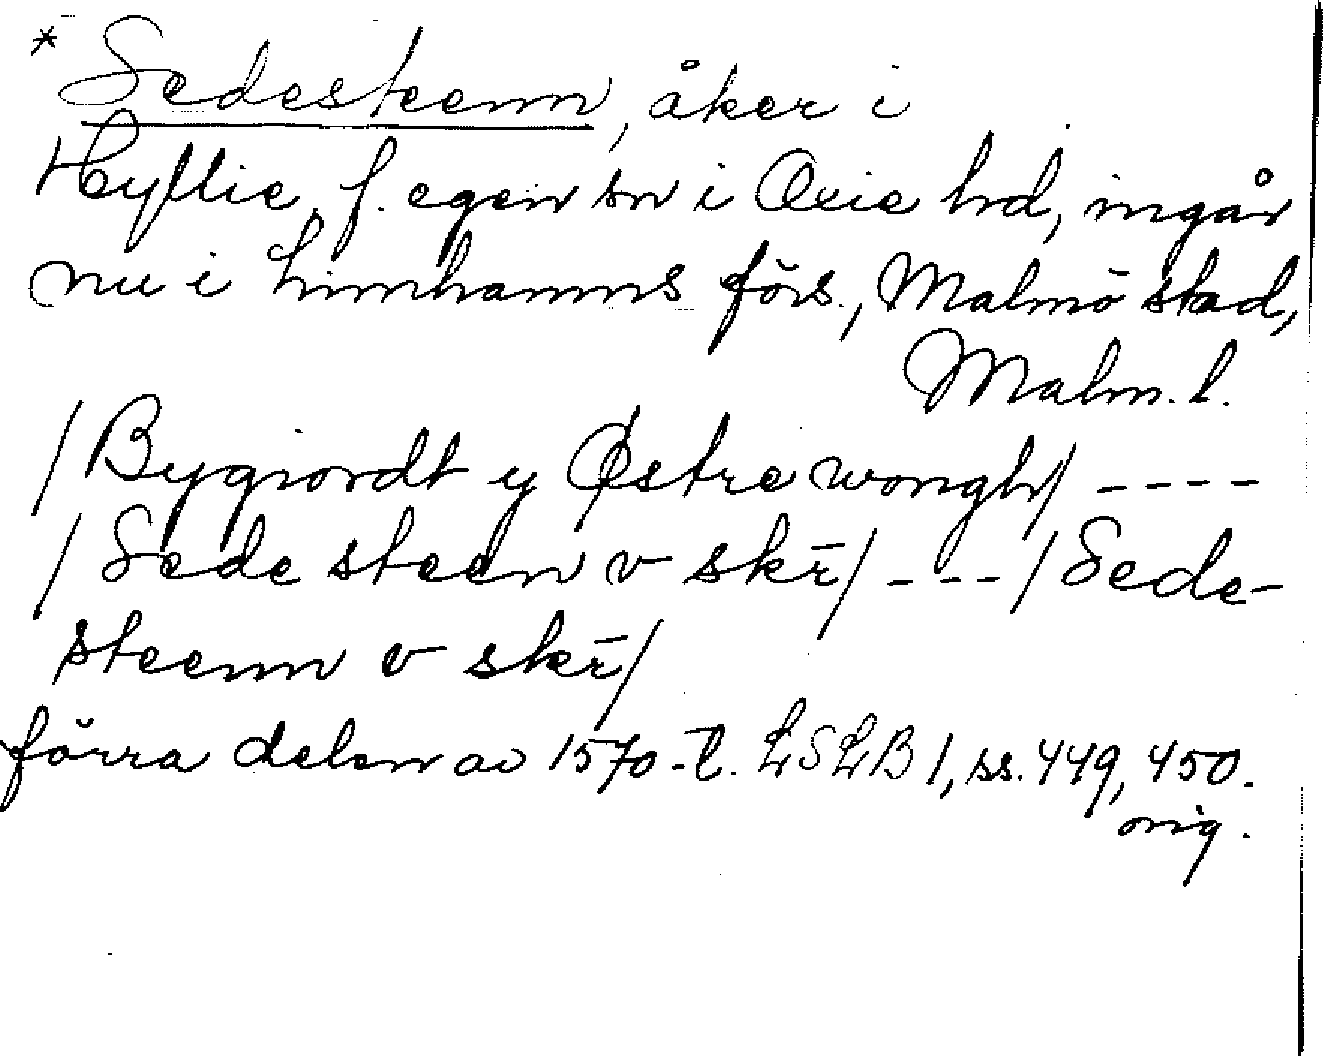 * Sedesteenn, åker i
Hyllie, f. egen sn i Oxie hd, ingår
nu i Limhamns förs., Malmö stad,
Malm. l.
/Bygiordt y Østre wongh/ ----
/Sede steen v skr̄/ --- /Sede-
steenn v skr̄/
förra delen av 1570-t. LSLB 1, ss. 449, 450.
orig.